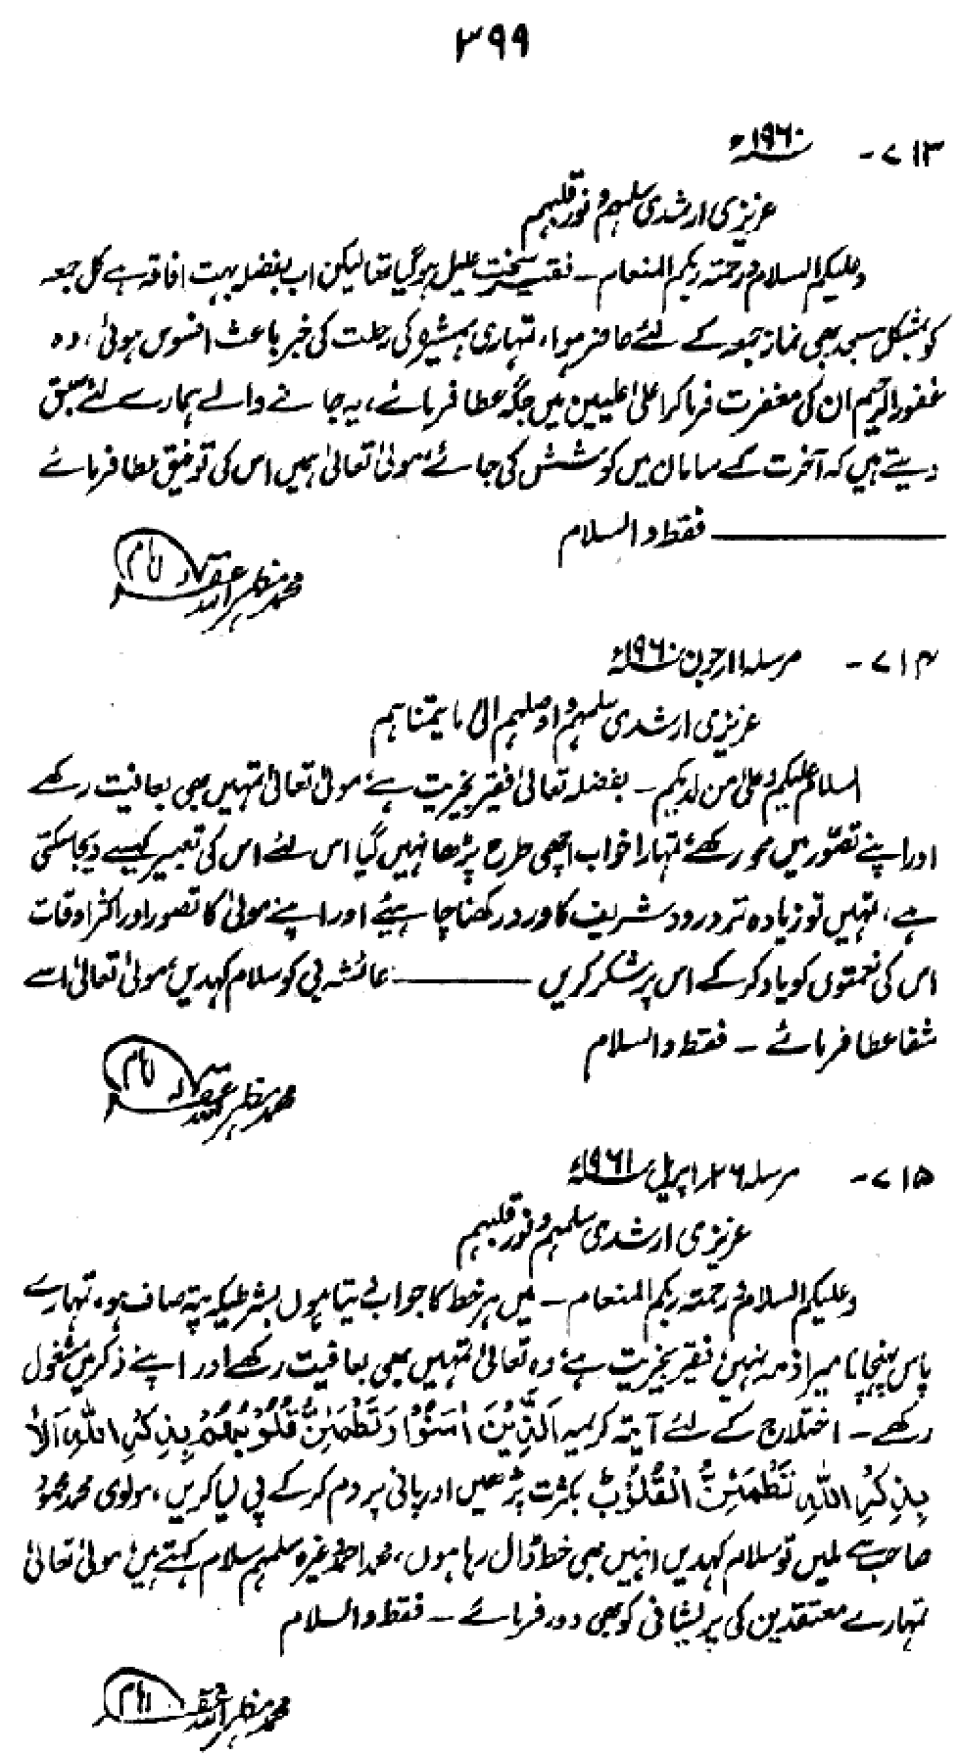 ۳۹۹
۷۱۳- ۱۹۶۰ء
عزیزی ارشدی سلہم و نور قلبہم
وعلیکم السلام و رحمتہ ربکم المنعام - فقیر سخت علیل ہوگیا تھا لیکن اب بفضلہ بہت افاقہ ہے کل جمعہ
کو بمشکل مسجد بھی نماز جمعہ کے لئے حاضر ہوا، تمہاری ہمشیرہ کی رحلت کی خبر باعث افسوس ہوئی، وہ
غفور الرحیم ان کی مغفرت فرما کر اعلیٰ علیین میں جگہ عطا فرمائے، یہ جانے والے ہمارے لئے سبق
دیتے ہیں کہ آخرت کے سامان میں کوشش کی جائے، مولیٰ تعالیٰ ہمیں اس کی توفیق عطا فرمائے
فقط والسلام
محمد مظہر اللہ غفرلہ امام
۷۱۴- مرسلہ ۱۱ر جون ۱۹۶۰ء
عزیزی ارشدی سلمہم و اوصلہم الیٰ ما یتمناہم
السلام علیکم وعلیٰ من لدیکم - بفضلہ تعالیٰ فقیر بخیریت ہے، مولیٰ تعالیٰ تمہیں بھی بعافیت رکھے
اور اپنے تصوّر میں محو رکھے، تمہارا خواب اچھی طرح پڑھا نہیں گیا اس لئے اس کی تعبیر کیسے دیجاسکتی
ہے، تمہیں تو زیادہ تر درود شریف کا ورد رکھنا چاہیئے اور اپنے مولیٰ کا تصور اور اکثر اوقات
اس کی نعمتوں کو یاد کر کے اس پر شکر کریں ——— عائشہ بی کو سلام کہدیں، مولیٰ تعالیٰ اسے
شفا عطا فرمائے - فقط والسلام
محمد مظہر اللہ غفرلہ امام
۷۱۵- مرسلہ ۲۶ر اپریل ۱۹۶۱ء
عزیزی ارشدی سلمہم و نور قلبہم
وعلیکم السلام و رحمتہ ربکم المنعام - میں ہر خط کا جواب دیتا ہوں بشرطیکہ پتہ صاف ہو، تمہارے
پاس پہنچانا میرا ذمہ نہیں، فقیر بخیریت ہے، وہ تعالیٰ تمہیں بھی بعافیت رکھے اور اپنے ذکر میں مشغول
رکھے - اختلاج کے لئے آیتہ کریمہ اَلَّذِیْنَ اٰمَنُوْا وَتَطْمَئِنُّ قُلُوْبُهُمْ بِذِكْرِ اللّٰهِ اَلَا
بِذِكْرِ اللّٰهِ تَطْمَئِنُّ الْقُلُوْبُ بکثرت پڑھیں اور پانی پر دم کر کے پی لیا کریں، مولوی محمد محمود
صاحب سے ملیں تو سلام کہدیں انہیں بھی خط ڈال رہا ہوں، محمد احمد وغیرہ سلمہم سلام کہتے ہیں، مولیٰ تعالیٰ
تمہارے معتقدین کی پریشانی کو بھی دور فرمائے - فقط والسلام
محمد مظہر اللہ غفرلہ امام